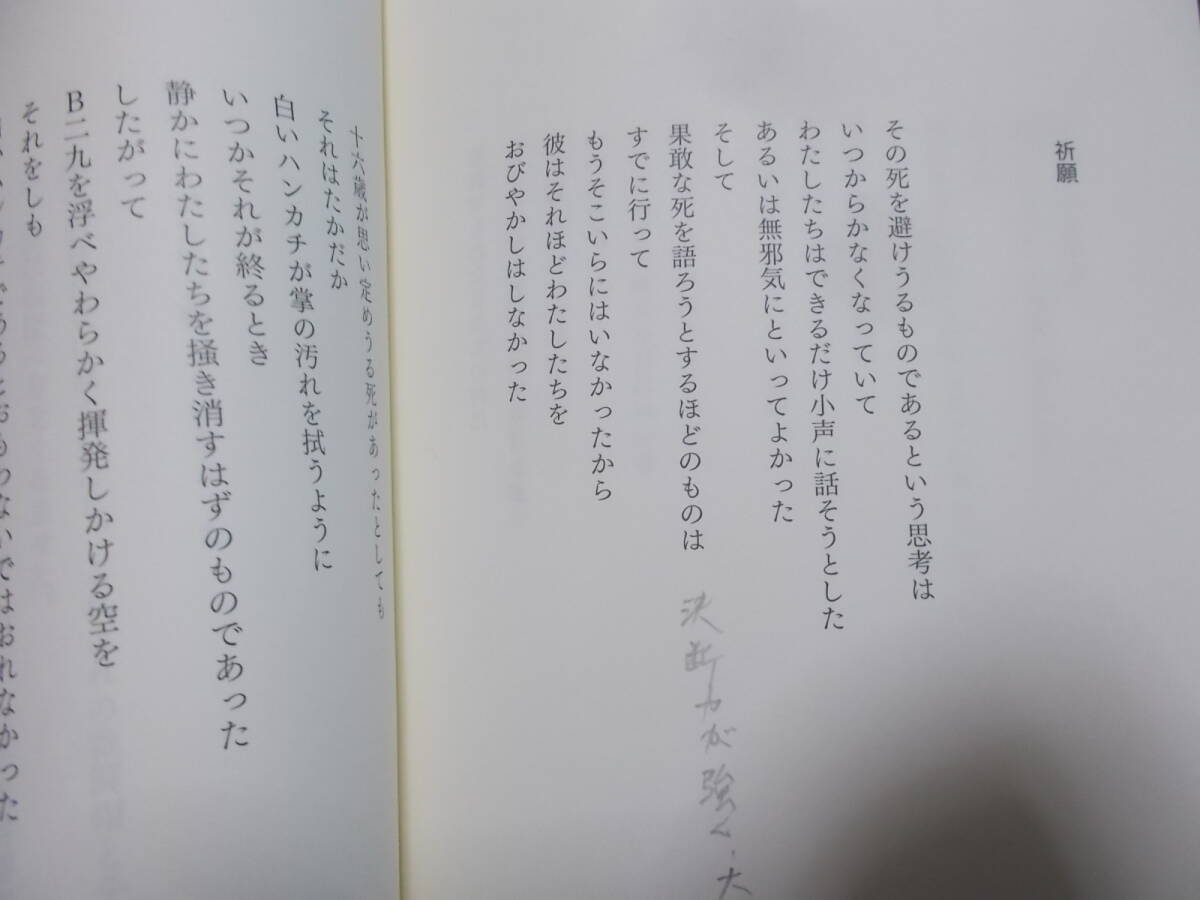 祈願
その死を避けうるものであるという思考は
いつからかなくなっていて
わたしたちはできるだけ小声に話そうとした
あるいは無邪気にといってよかった
そして
果敢な死を語ろうとするほどのものは
決断力が強く、大
すでに行って
もうそこいらにはいなかったから
彼はそれほどわたしたちを
おびやかしはしなかった
十六歳が思い定めうる死があったとしても
それはたかだか
白いハンカチが掌の汚れを拭うように
いつかそれが終るとき
静かにわたしたちを掻き消すはずのものであった
したがって
B二九を浮べやわらかく揮発しかける空を
それをしも
であるとおもわないではおれなかった